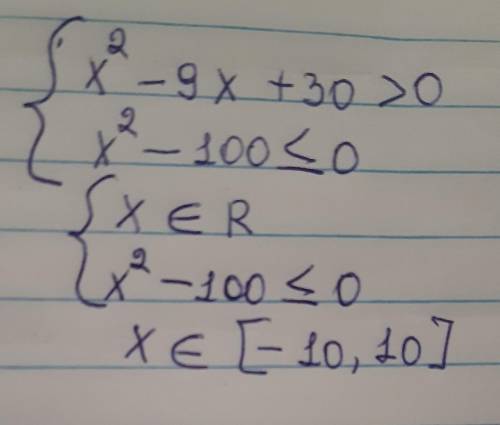 x² - 9x + 30 > 0
x² - 100 ≤ 0
x ∈ R
x² - 100 ≤ 0
x ∈ [-10, 10]